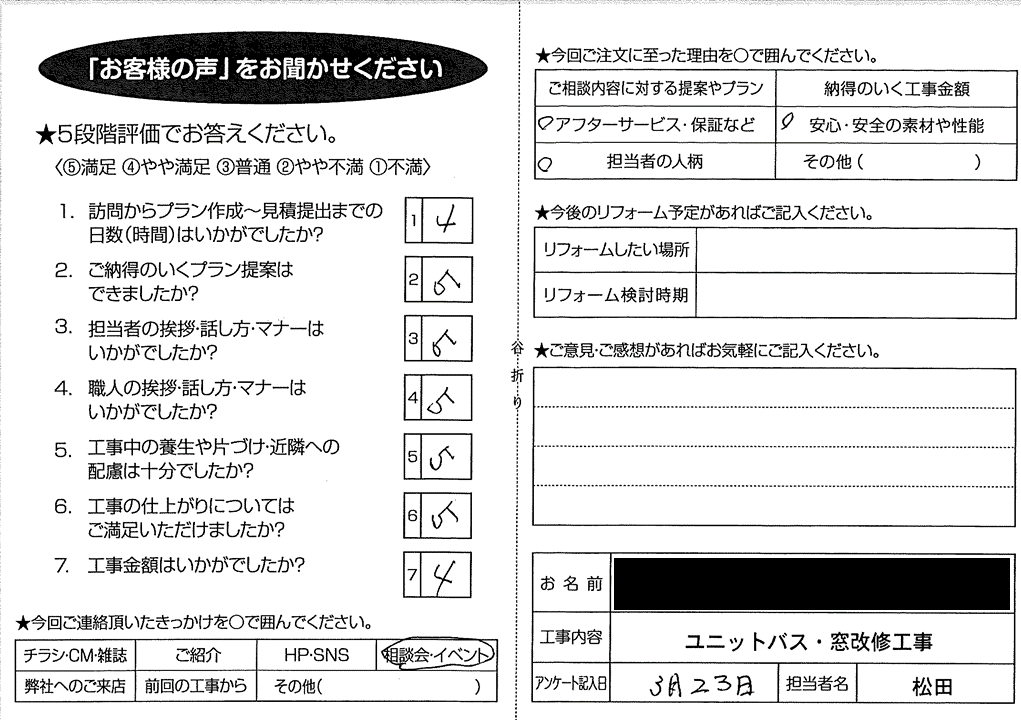 「お客様の声」をお聞かせください
★5段階評価でお答えください。
〈⑤満足 ④やや満足 ③普通 ②やや不満 ①不満〉
1. 訪問からプラン作成～見積提出までの
日数(時間)はいかがでしたか?
1 4
2. ご納得のいくプラン提案は
できましたか?
2 5
3. 担当者の挨拶・話し方・マナーは
いかがでしたか?
3 5
4. 職人の挨拶・話し方・マナーは
いかがでしたか?
4 5
5. 工事中の養生や片づけ・近隣への
配慮は十分でしたか?
5 5
6. 工事の仕上がりについては
ご満足いただけましたか?
6 5
7. 工事金額はいかがでしたか?
7 4
★今回ご連絡頂いたきっかけを○で囲んでください。
チラシ・CM・雑誌 ご紹介 HP・SNS 相談会・イベント
弊社へのご来店 前回の工事から その他( )
谷折り
★今回ご注文に至った理由を○で囲んでください。
ご相談内容に対する提案やプラン 納得のいく工事金額
アフターサービス・保証など 安心・安全の素材や性能
担当者の人柄 その他( )
★今後のリフォーム予定があればご記入ください。
リフォームしたい場所
リフォーム検討時期
★ご意見・ご感想があればお気軽にご記入ください。
お名前
工事内容 ユニットバス・窓改修工事
アンケート記入日 3月23日 担当者名 松田